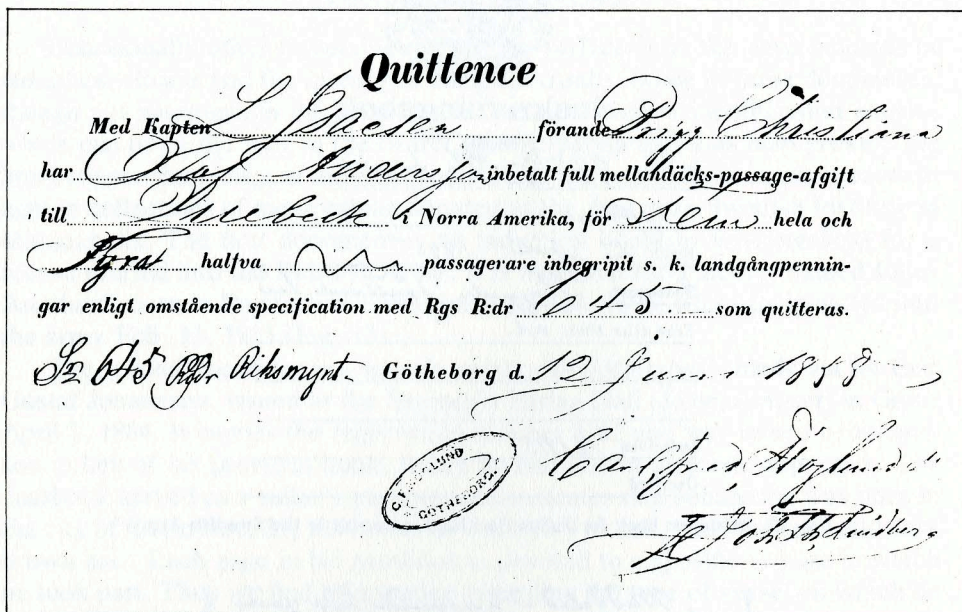 Quittence
Med Kapten förande Brigg Christiana
har Olof Andersson inbetalt full mellandäcks-passage-afgift
till Quebeck i Norra Amerika, för Fem hela och
Fyra halfva passagerare inbegripit s. k. landgångpennin-
gar enligt omstående specification med Rgs R:dr 645 som quitteras.
645 Rgdr Riksmynt. Götheborg d. 12 Juni 1858
LAND
GÖTHEBORG
Carl Fred. Höglund